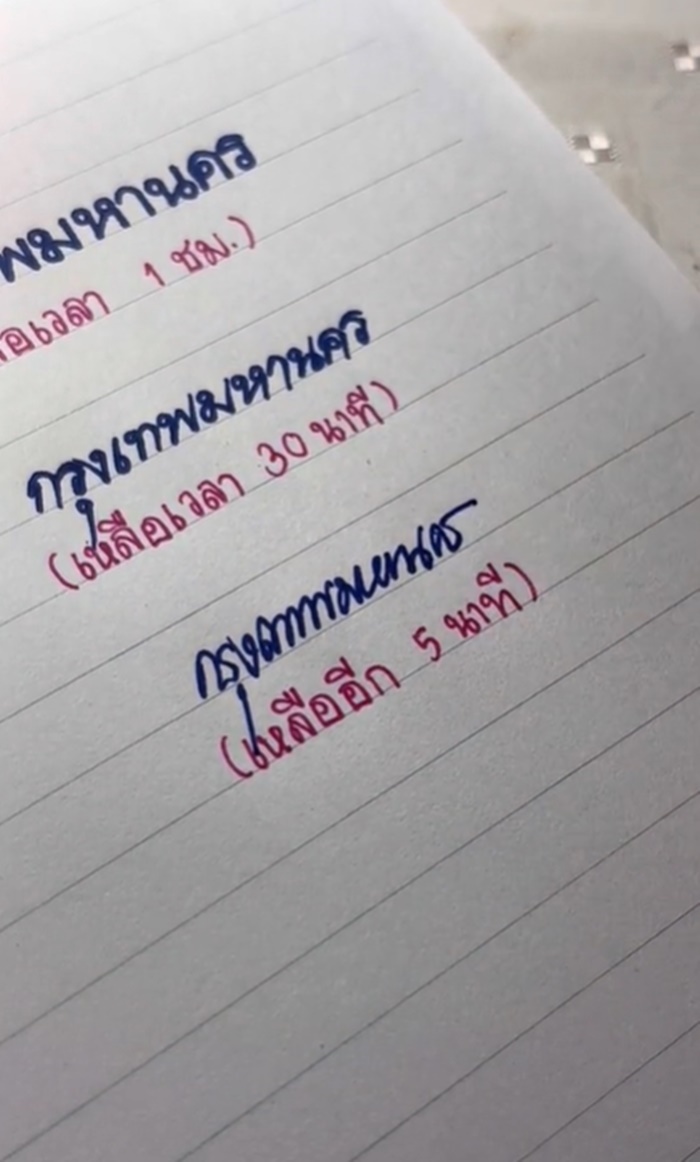 พมหานคร
อเวลา 1 ชม.)
กรุงเทพมหานคร
(เหลือเวลา 30 นาที)
กรุงเทพมหานคร
(เหลืออีก 5 นาที)